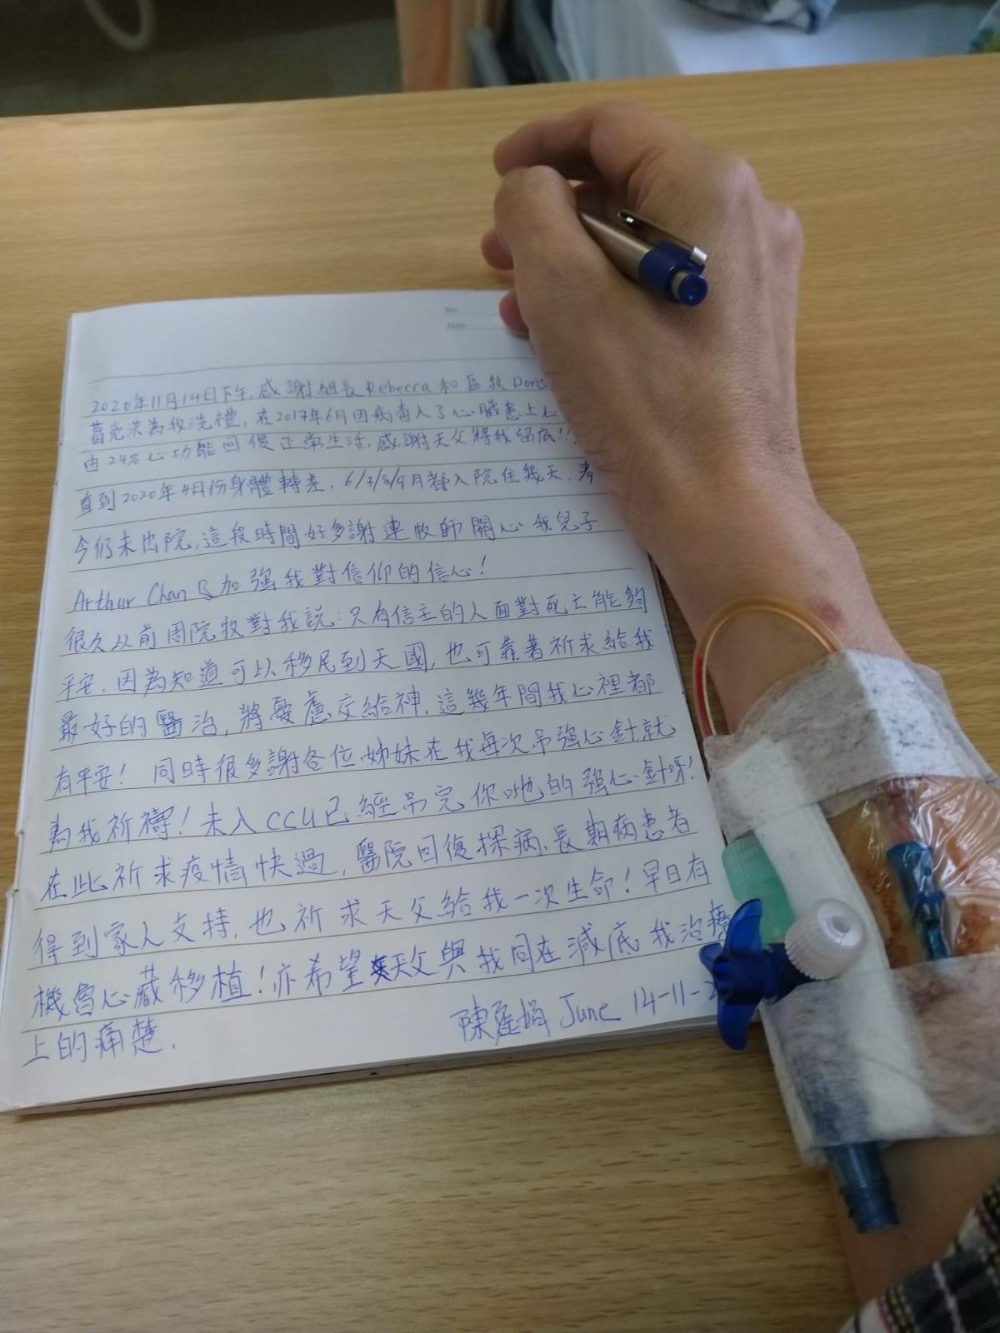 No.
Date
2020年11月14日下午,感謝組長Rebecca和區牧Doris
為我洗禮,在2017年6月因病毒入了心臟患上心
由24%心功能回復正常生活,感謝天父將我
直到2020年4月份身體轉差,6/7/8/9月都入院住幾天,
今仍未出院,這段時間好多謝連牧師關心我兒子
Arthur Chan及加強我對信仰的信心!
很久以前院牧對我說:只有信主的人面對死亡能夠
平安,因為知道可以移民到天國,也可靠著祈求給我
最好的醫治,將憂慮交給神,這幾年間我心裡都
有平安! 同時很多謝各位姊妹在我每次吊強心針就
為我祈禱!未入CCU已經吊完你哋的強心針呀!
在此祈求疫情快過,醫院回復探病,長期病患者
得到家人支持,也祈求天父給我一次生命!早日有
機會心藏移植!亦希望天父與我同在減底我治療
上的痛楚.
陳 娟 June 14-11-2